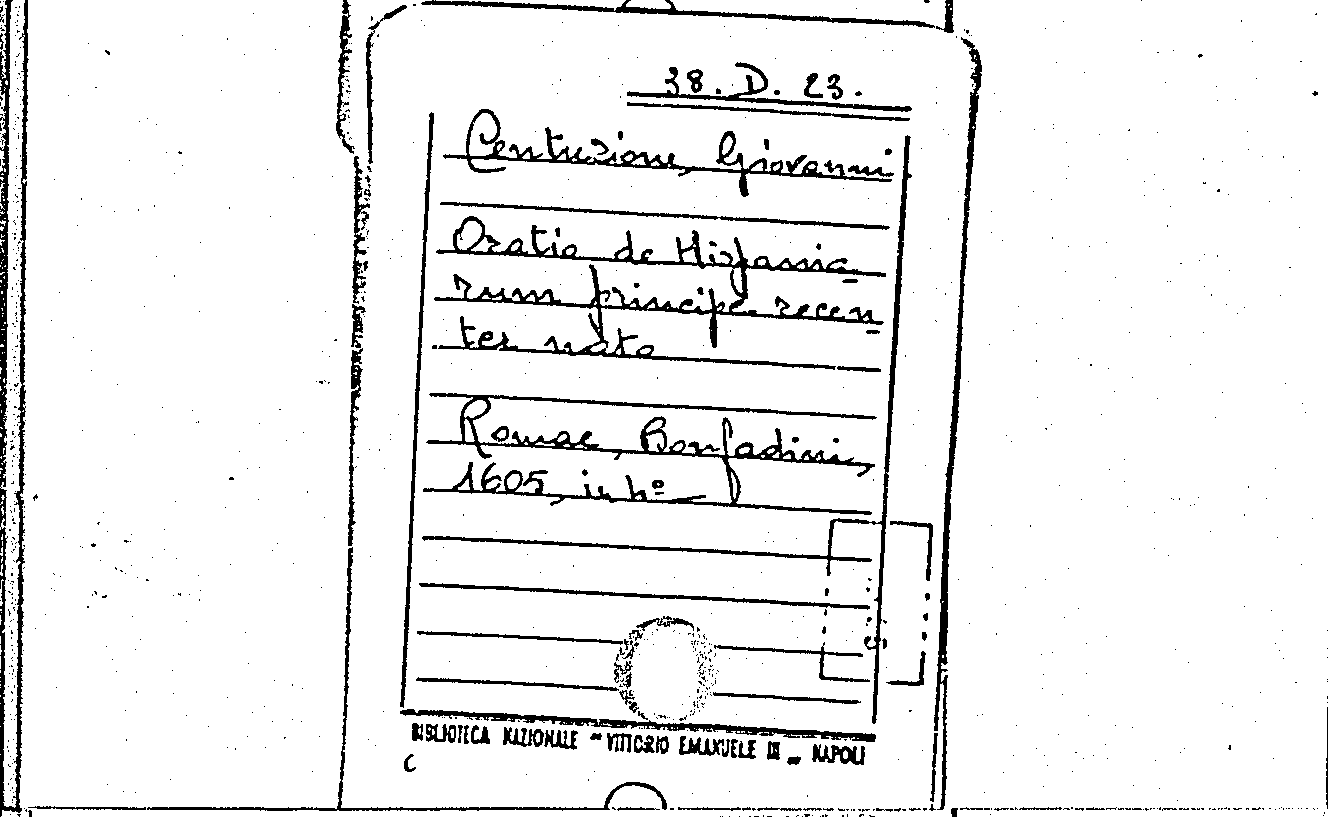 38. D. 23.
Centurione, Giovanni
Oratio de Hispania
rum principe recen
ter nato
Romae, Bonfadini,
1605, in 4º
BIBLIOTECA NAZIONALE "VITTORIO EMANUELE III" NAPOLI
C